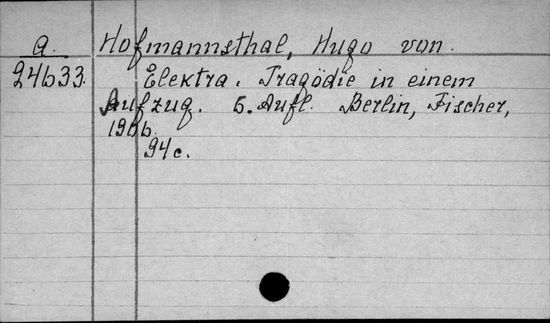 a. Hofmannsthal, Hugo von.
24633. Elektra. Tragödie in einem
Aufzug. 5. Aufl. Berlin, Fischer,
1906.
94c.